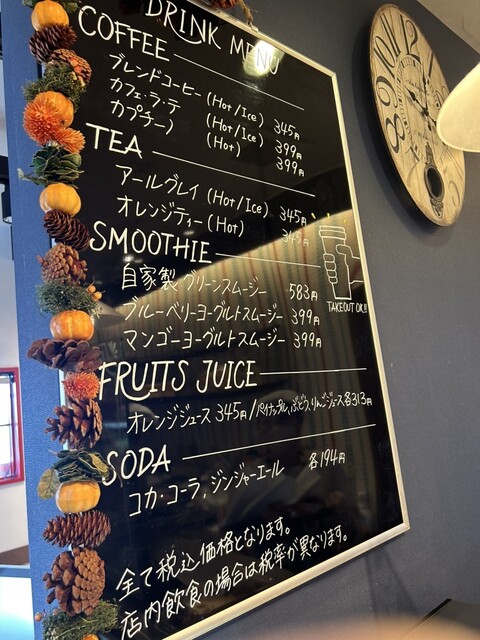 DRINK MENU
COFFEE
ブレンドコーヒー (Hot/Ice) 345円
カフェ・ラ・テ (Hot/Ice) 399円
カプチーノ (Hot) 399円
TEA
アールグレイ (Hot/Ice) 345円
オレンジティー (Hot) 345円
SMOOTHIE
自家製グリーンスムージー 583円
ブルーベリーヨーグルトスムージー 399円
マンゴーヨーグルトスムージー 399円
TAKEOUT OK!!
FRUITS JUICE
オレンジジュース 345円/パイナップル,ぶどう,りんごジュース各313円
SODA
コカ・コーラ,ジンジャーエール 各194円
全て税込価格となります。
店内飲食の場合は税率が異なります。